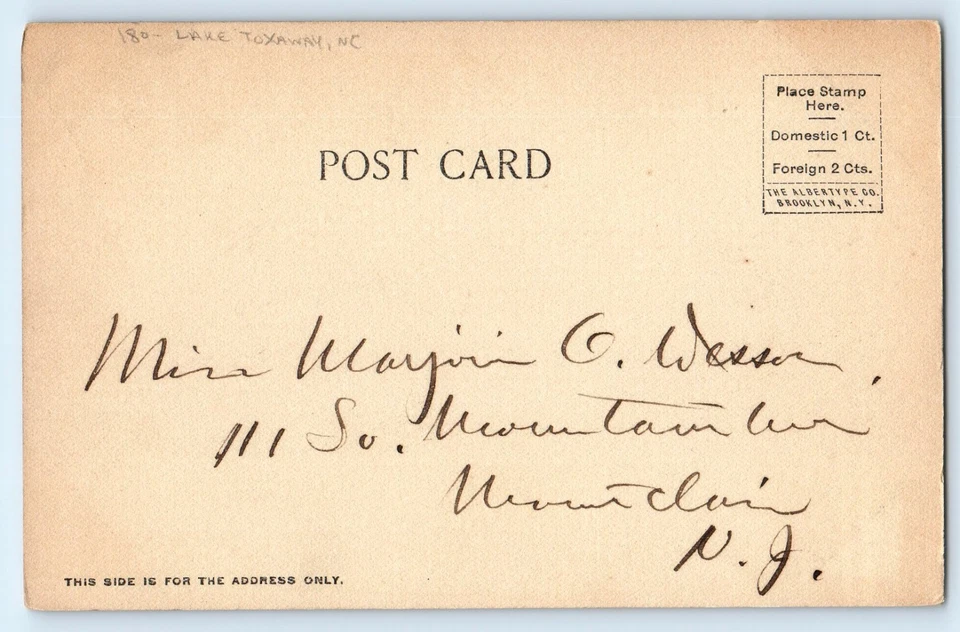 180- LAKE TOXAWAY, NC
Place Stamp
Here.
Domestic 1 Ct.
Foreign 2 Cts.
THE ALBERTYPE CO.
BROOKLYN, N.Y.
POST CARD
Miss Marjorie O. Wesson,
111 So. Mountain Ave
Montclair
N. J.
THIS SIDE IS FOR THE ADDRESS ONLY.